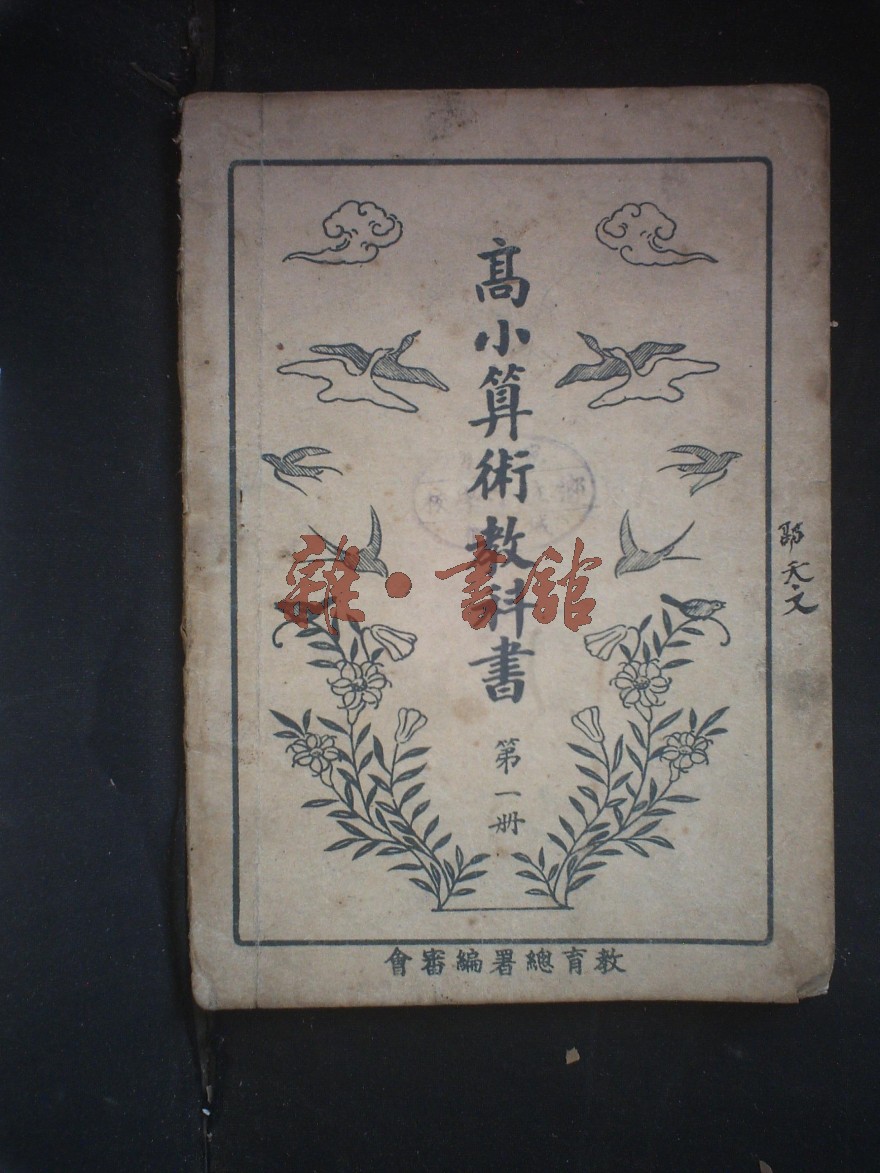 高小算術教科書
第一册
教育總署編審會
雜·書館
天文